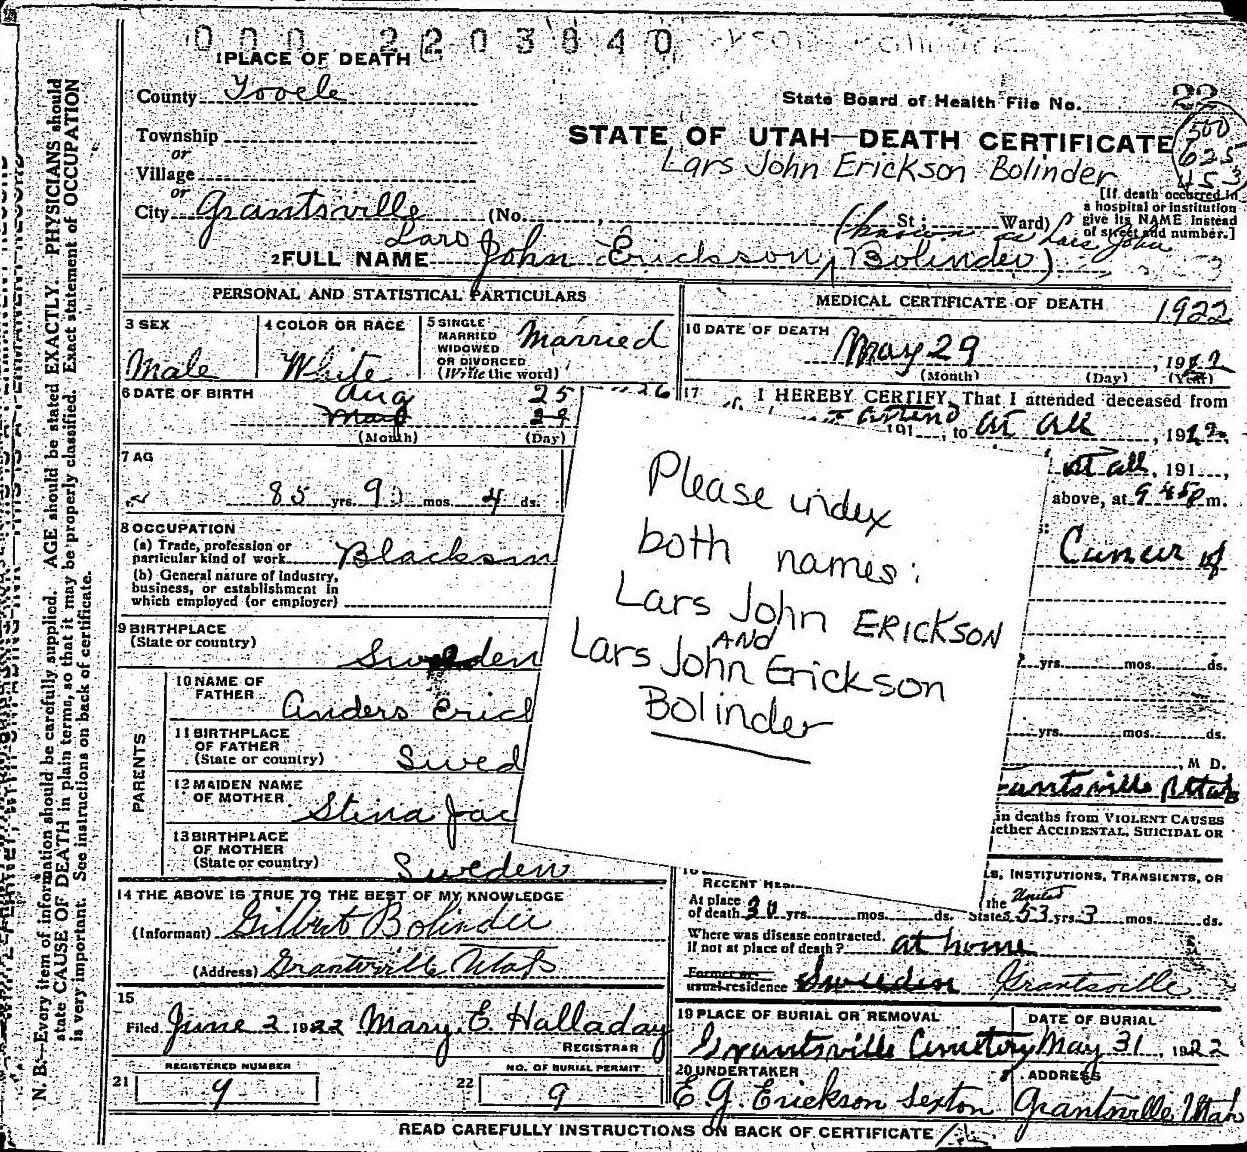 000 2203840
1 PLACE OF DEATH
County Tooele
State Board of Health File No. 22
Township
or
Village
or
City Grantsville (No. , St.; Ward)
STATE OF UTAH—DEATH CERTIFICATE
Lars John Erickson Bolinder
500
625
453
[If death occurred in
a hospital or institution
give its NAME instead
of street and number.]
(known as Lars John
Lars
2 FULL NAME John Erickson Bolinder)
3
PERSONAL AND STATISTICAL PARTICULARS
3 SEX
Male
4 COLOR OR RACE
White
5 SINGLE
MARRIED
WIDOWED
OR DIVORCED
(Write the word)
Married
6 DATE OF BIRTH
Aug 25
May 29
(Month) (Day)
7 AG
85 yrs. 9 mos. 4 ds.
8 OCCUPATION
(a) Trade, profession or
particular kind of work Blacksm
(b) General nature of Industry,
business, or establishment in
which employed (or employer)
9 BIRTHPLACE
(State or country)
Sweden
PARENTS
10 NAME OF
FATHER
Anders Erick
11 BIRTHPLACE
OF FATHER
(State or country)
Swed
12 MAIDEN NAME
OF MOTHER
Stina Jac
13 BIRTHPLACE
OF MOTHER
(State or country)
Sweden
14 THE ABOVE IS TRUE TO THE BEST OF MY KNOWLEDGE
(Informant) Gilbert Bolinder
(Address) Grantsville Utah
15
Filed June 2 1922 Mary E Halladay
REGISTRAR
REGISTERED NUMBER
21 9
NO. OF BURIAL PERMIT
22 9
MEDICAL CERTIFICATE OF DEATH 1922
16 DATE OF DEATH
May 29, 1922
(Month) (Day) (Year)
17 I HEREBY CERTIFY, That I attended deceased from
attend 191 , to at all , 1922
at all , 191 ,
above, at 9 45 P m.
Cancer of
yrs. mos. ds.
yrs. mos. ds.
, M D.
Grantsville Utah
in deaths from VIOLENT CAUSES
ether ACCIDENTAL, SUICIDAL OR
LS, INSTITUTIONS, TRANSIENTS, OR
RECENT
At place
of death 20 yrs. mos. ds.
the United
States 53 yrs. 3 mos. ds.
Where was disease contracted,
if not at place of death? at home
Former or
usual residence Sweden Grantsville
19 PLACE OF BURIAL OR REMOVAL
Grantsville Cemetery
DATE OF BURIAL
May 31, 1922
20 UNDERTAKER
E G. Erickson Sexton
ADDRESS
Grantsville Utah
READ CAREFULLY INSTRUCTIONS ON BACK OF CERTIFICATE
Please index
both names:
Lars John ERICKSON
AND
Lars John Erickson
Bolinder
N. B.—Every item of information should be carefully supplied. AGE should be stated EXACTLY. PHYSICIANS should
state CAUSE OF DEATH in plain terms, so that it may be properly classified. Exact statement of OCCUPATION
is very important. See instructions on back of certificate.